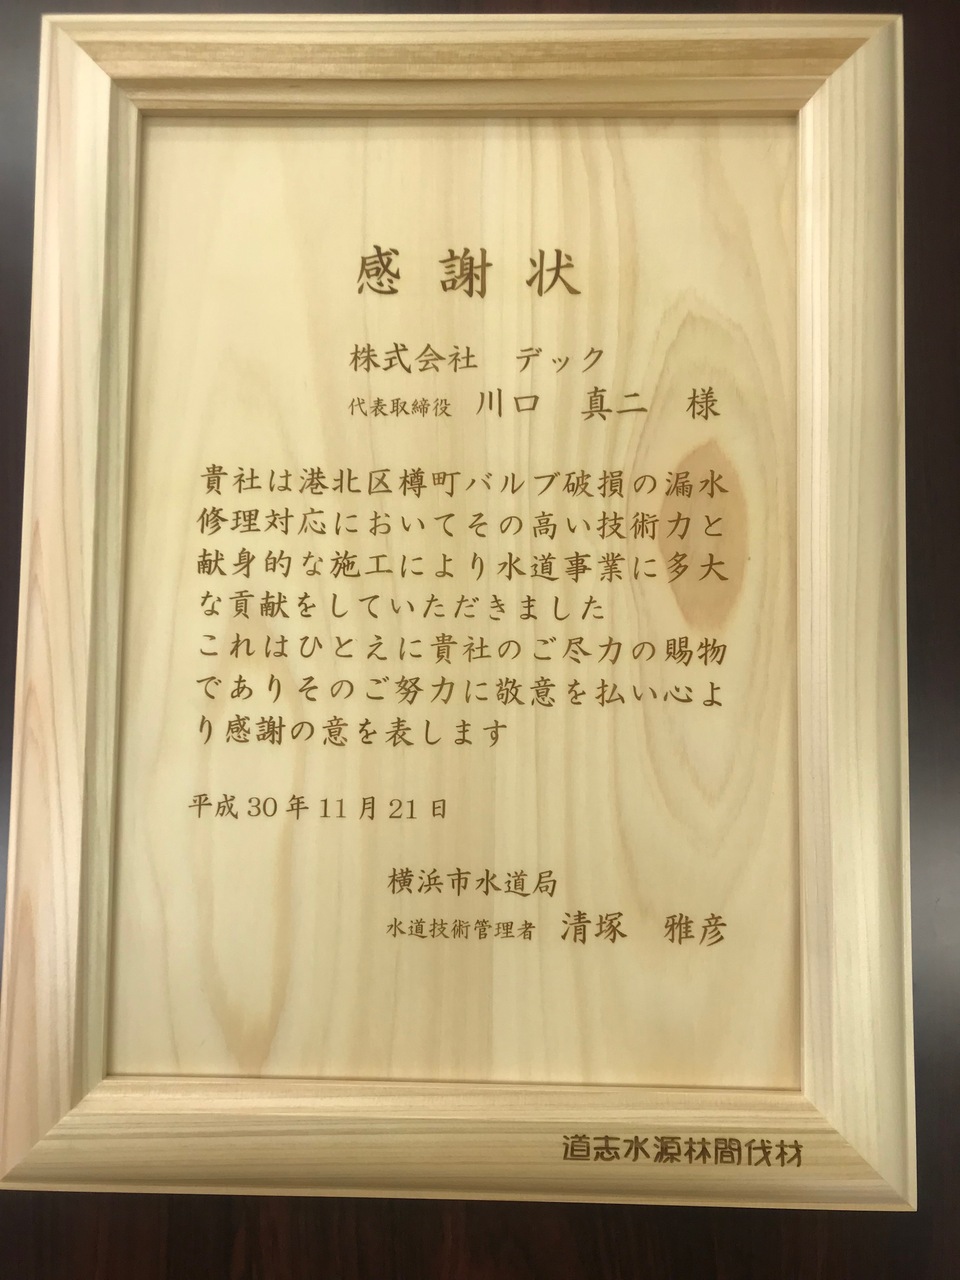 感謝状
株式会社　デック
代表取締役　川口　真二　様
貴社は港北区樽町バルブ破損の漏水
修理対応においてその高い技術力と
献身的な施工により水道事業に多大
な貢献をしていただきました
これはひとえに貴社のご尽力の賜物
でありそのご努力に敬意を払い心よ
り感謝の意を表します
平成 30 年 11 月 21 日
横浜市水道局
水道技術管理者　清塚　雅彦
道志水源林間伐材